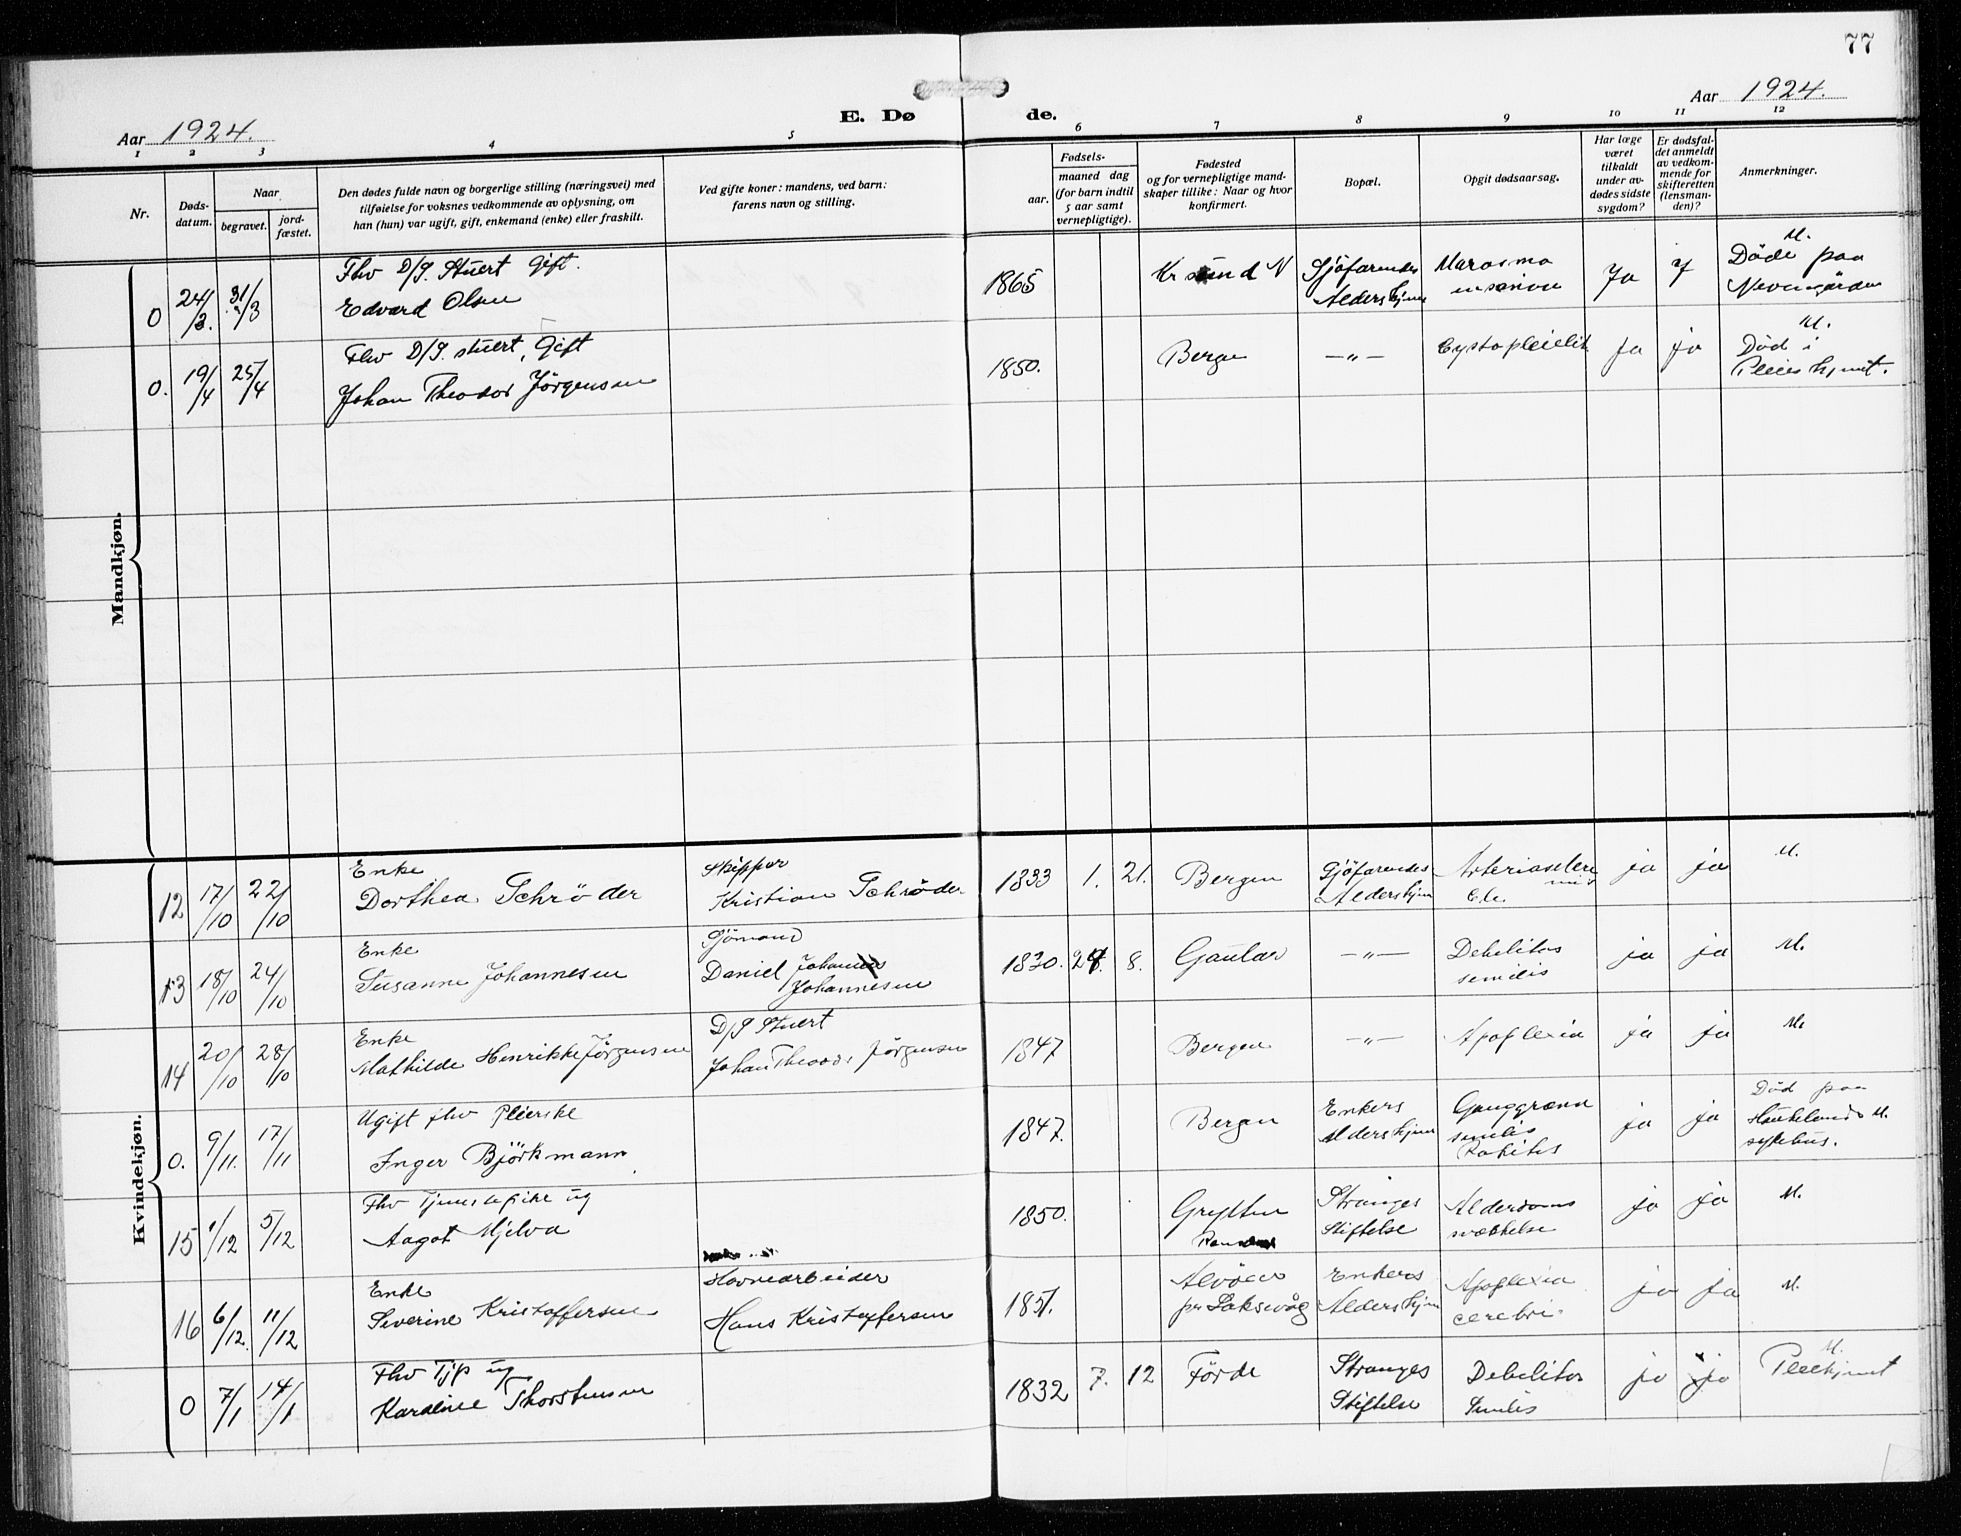 77
Aar 1924.
E. Døde.
Aar 1924.
1 2 3 4 5 6 7 8 9 10 11 12
Nr.
Døds-
datum.
Naar
begravet.
jord-
fæstet.
Den dødes fulde navn og borgerlige stilling (næringsvei) med
tilføielse for voksnes vedkommende av oplysning, om
han (hun) var ugift, gift, enkemand (enke) eller fraskilt.
Ved gifte koner: mandens, ved barn:
farens navn og stilling.
Fødsels-
aar.
maaned dag
(for barn indtil
5 aar samt
vernepligtige).
Fødested
og for vernepligtige mand-
skaper tillike: Naar og hvor
konfirmert.
Bopæl.
Opgit dødsaarsag.
Har læge
været
tilkaldt
under av-
dødes sidste
sygdom?
Er dødsfal-
det anmeldt
av vedkom-
mende for
skifteretten
(lensman-
den)?
Anmerkninger.
Mandkjøn.
0 24/3. 31/3
Fhv D/S. Stuert Gift.
Edvard Olsen
1865
Kr sund N
Sjöfarendes
Aldershjem
Ja
M.
Döde paa
0. 19/4 25/4
Fhv D/S. stuert, Gift
Johan Theodor Jörgensen
1850.
Bergen
—"—
Ja
ja
M.
Död i
Pleiehjemt.
Kvindekjøn.
12 17/10 22/10
Enke
Dorthea Schrøder
Skipper
Kristian Schrøder
1833 1. 21.
Bergen
Sjöfarendes
Aldershjem
ja
ja
M.
13 18/10 24/10
Enke
Susanne Johannesen
Sjömand
Daniel
Johannesen
1830. 8.
Gaular
—"—
Debilitas
senilis
ja
ja
M.
14 20/10 28/10
Enke
Mathilde Henrikke Jörgensen
D/S Stuert
Johan Theodor Jörgensen
1847
Bergen
—"—
Apoplexia
ja
ja
M.
0. 9/11. 17/11
Ugift fhv Pleierske
Inger Björkmann
1847.
Bergen
Enkers
Aldershjem
Ganggræna
senilis
ja
ja
Död paa
Haukelands M.
sykehus.
15 1/12 5/12
Fhv Tjenestepike ug
Aagot Mjelva
1850.
Grytten
Stranges
Stiftelse
Alderdoms
svækkelse
ja
ja
M.
16 6/12. 11/12
Enke
Severine Kristoffersen
Havnearbeider
Hans Kristoffersen
1851.
Alvöen
pr Laksevåg
Enkers
Aldershjem
Apoplexia
cerebri
ja
ja
M.
0 7/1 14/1
Fhv Tjp ug
Karoline Thorstensen
1832 7. 12
Förde
Stranges
Stiftelse
Debilitas
Senilis
ja
ja
M.
Pleiehjemt